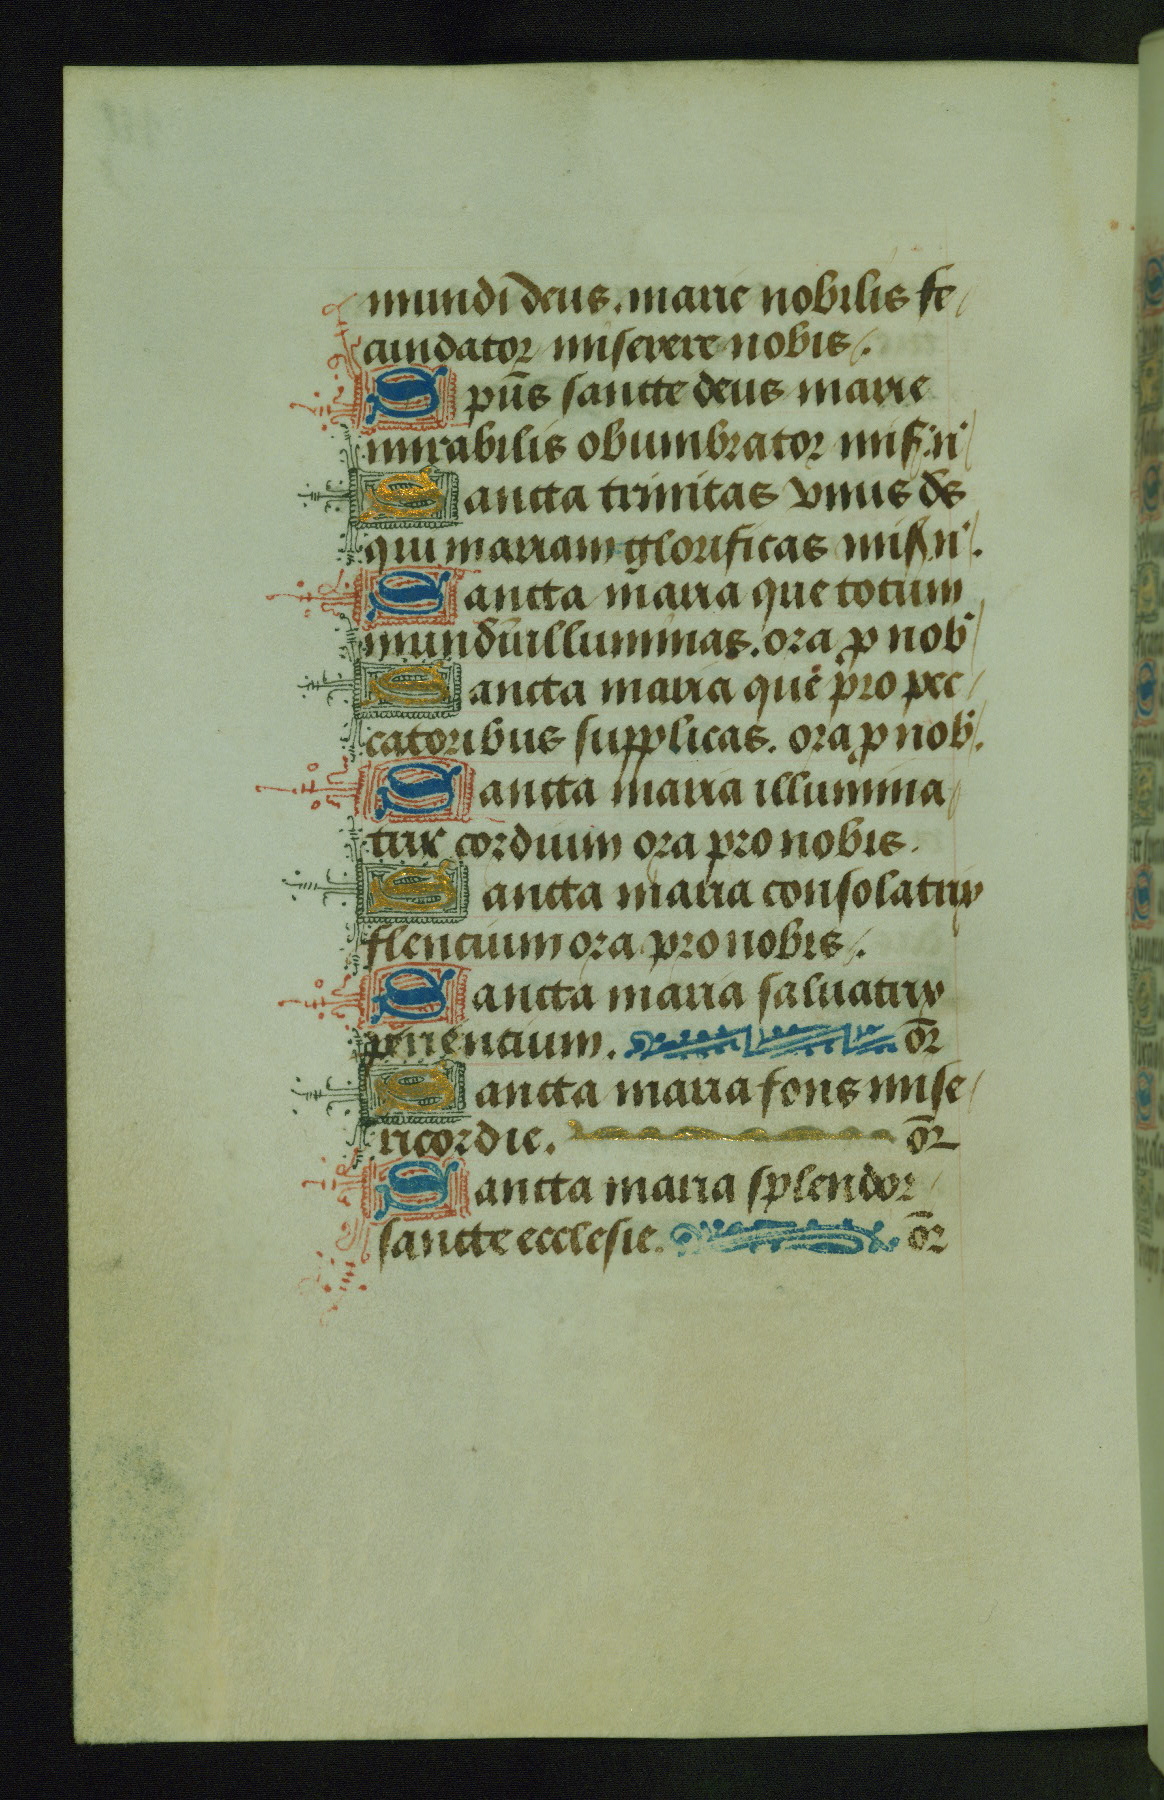 mundi deus. marie nobilis fe/
cundator miserere nobis/.
Spūs sancte deus marie
mirabilis obumbrator mis'. n'
Sancta trinitas vnus ds̄
qui mariam glorificas mis' n'.
Sancta maria que totum
mundū illuminas. ora p nob'
Sancta maria que pro pec/
catoribus supplicas. ora p nob'.
Sancta maria illumina/
trix cordium ora pro nobis.
Sancta maria consolatrix
flencium ora pro nobis/.
Sancta maria saluatrix
periencium. or̄
Sancta maria fons mise/
ricordie. or̄
Sancta maria splendor
sancte ecclesie. or̄